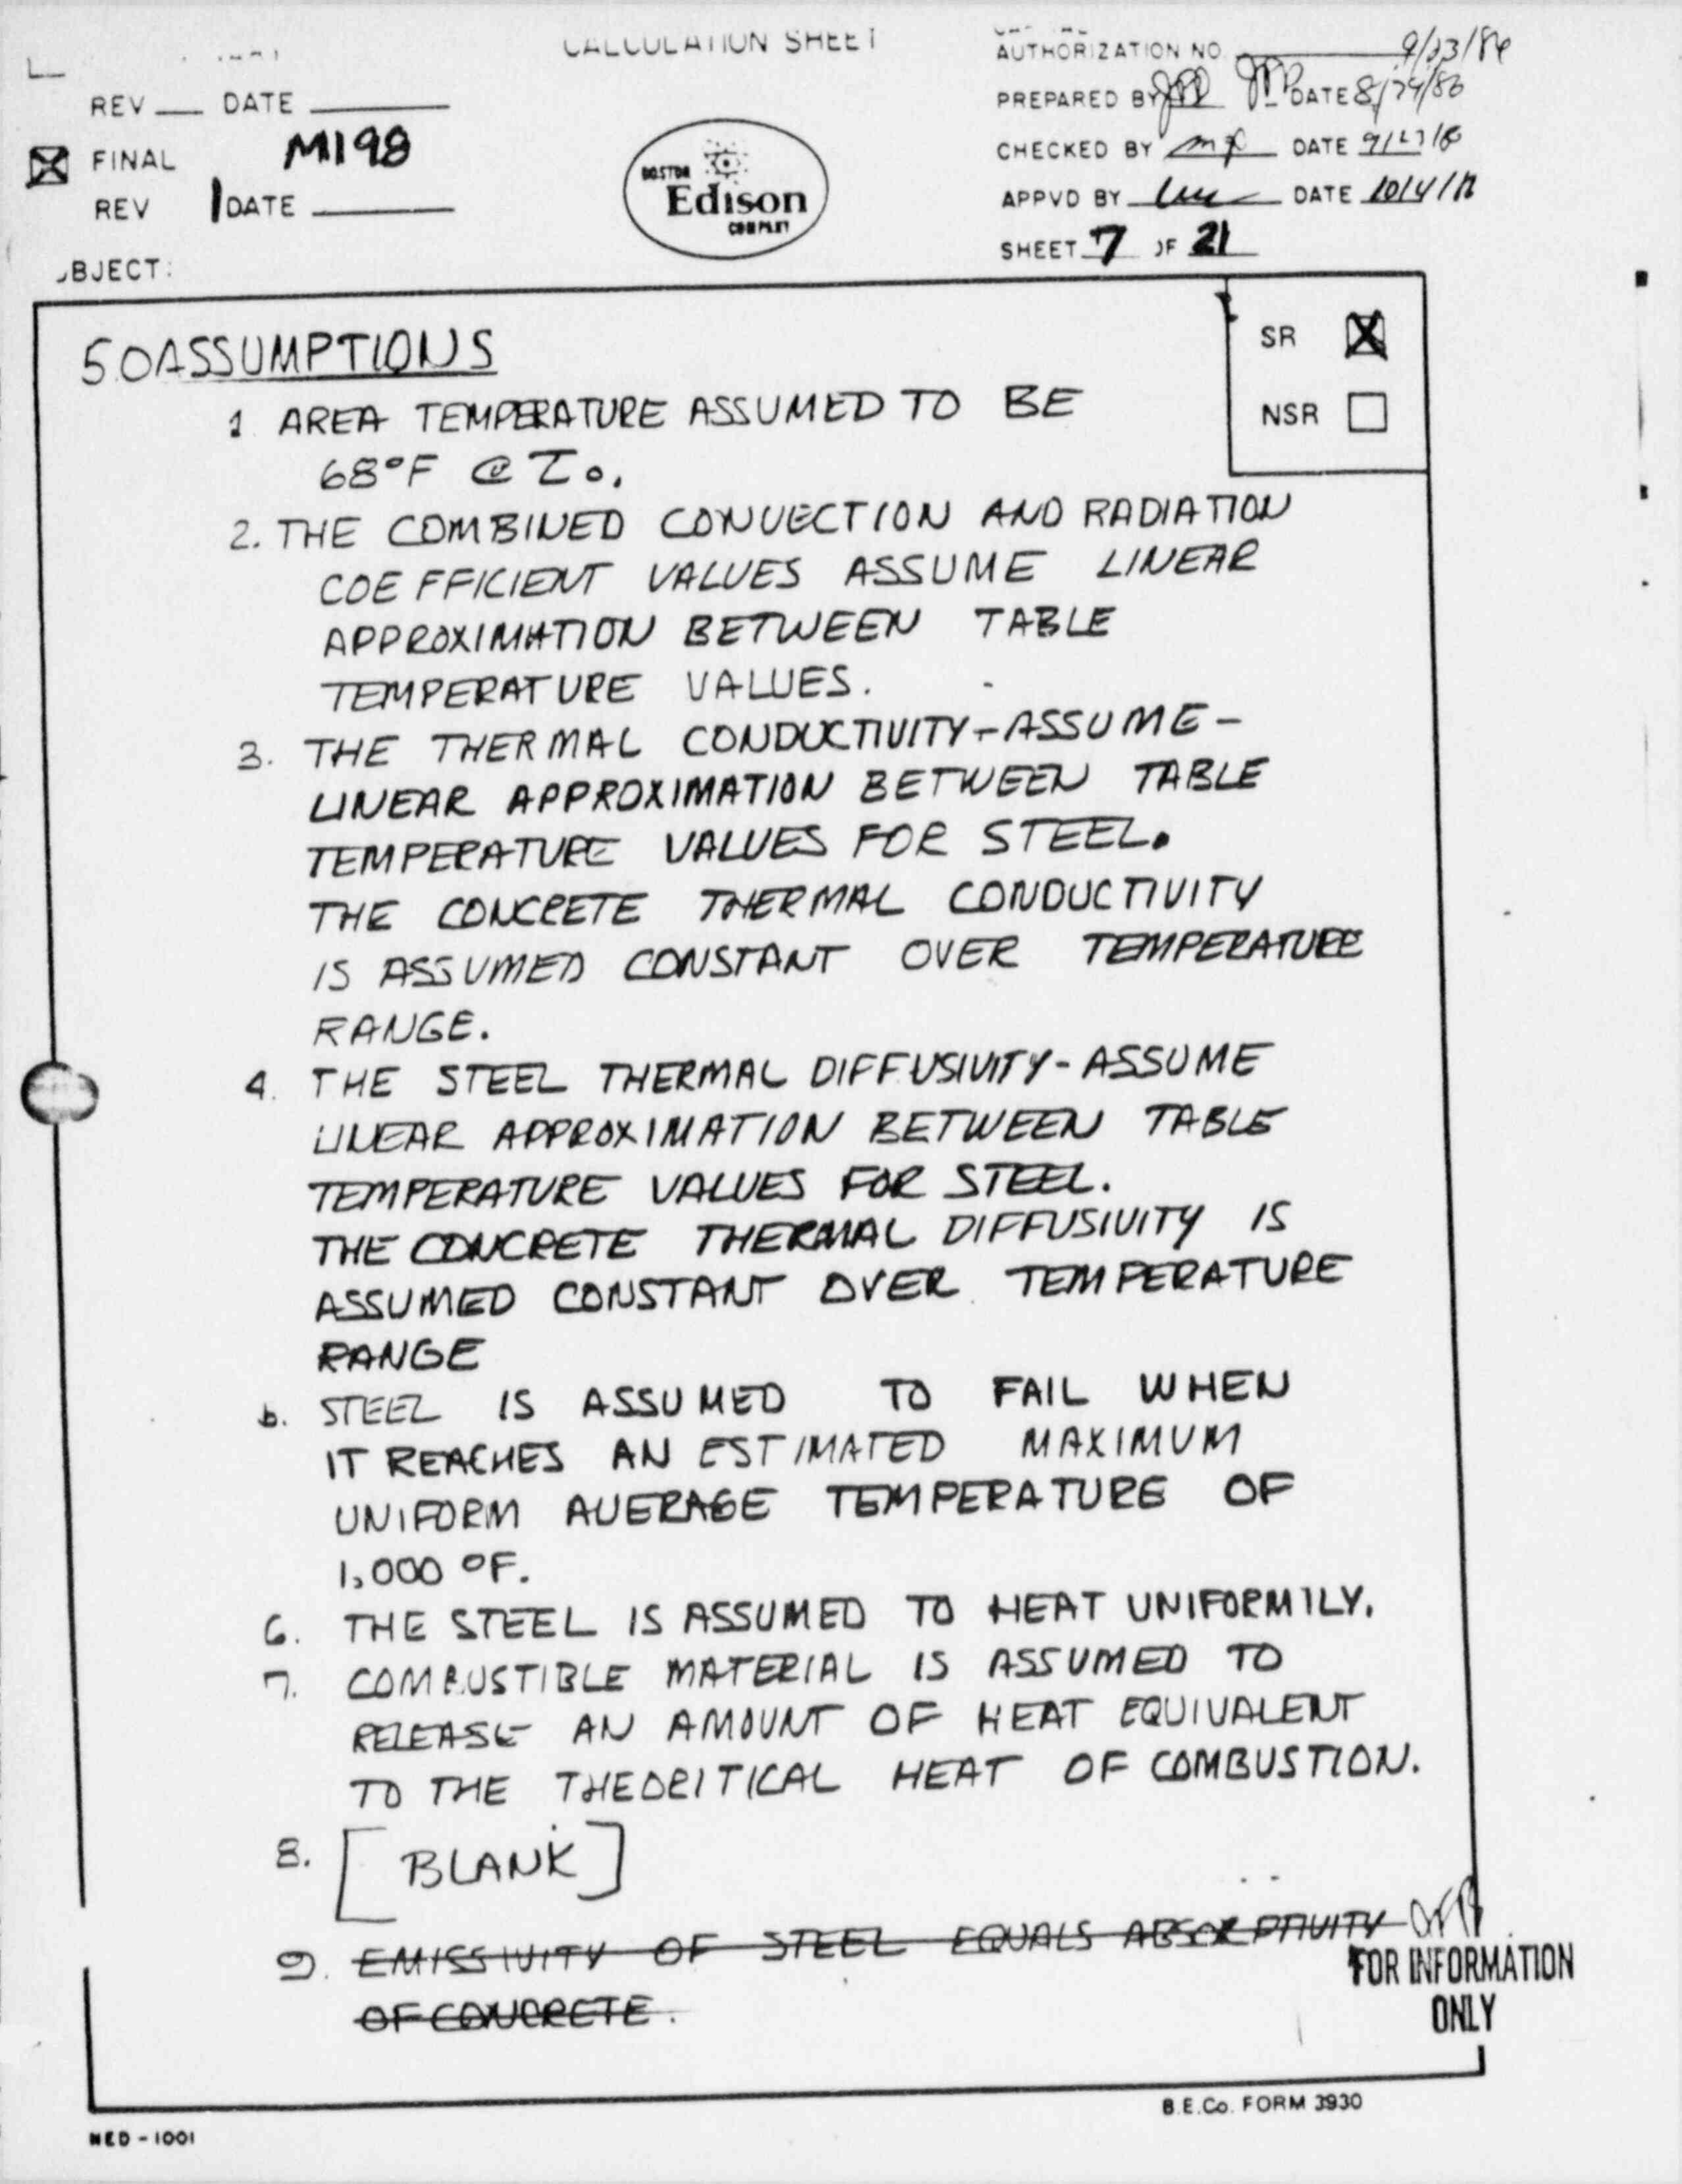 CALCULATION SHEET
AUTHORIZATION NO. 9/23/86
REV DATE
PREPARED BY DATE 8/29/86
FINAL M198
CHECKED BY DATE
REV 1 DATE
APPVD BY DATE
BOSTON
Edison
COMPANY
SHEET 7 OF 21
BJECT:
SR
NSR
5.0 ASSUMPTIONS
1 AREA TEMPERATURE ASSUMED TO BE
68°F @ To.
2. THE COMBINED CONVECTION AND RADIATION
COEFFICIENT VALUES ASSUME LINEAR
APPROXIMATION BETWEEN TABLE
TEMPERATURE VALUES.
3. THE THERMAL CONDUCTIVITY - ASSUME -
LINEAR APPROXIMATION BETWEEN TABLE
TEMPERATURE VALUES FOR STEEL.
THE CONCRETE THERMAL CONDUCTIVITY
IS ASSUMED CONSTANT OVER TEMPERATURE
RANGE.
4. THE STEEL THERMAL DIFFUSIVITY - ASSUME
LINEAR APPROXIMATION BETWEEN TABLE
TEMPERATURE VALUES FOR STEEL.
THE CONCRETE THERMAL DIFFUSIVITY IS
ASSUMED CONSTANT OVER TEMPERATURE
RANGE
STEEL IS ASSUMED TO FAIL WHEN
IT REACHES AN ESTIMATED MAXIMUM
UNIFORM AVERAGE TEMPERATURE OF
1,000 °F.
6. THE STEEL IS ASSUMED TO HEAT UNIFORMILY.
7. COMBUSTIBLE MATERIAL IS ASSUMED TO
RELEASE AN AMOUNT OF HEAT EQUIVALENT
TO THE THEORITICAL HEAT OF COMBUSTION.
8. [BLANK]
9. EMISSIVITY OF STEEL EQUALS ABSORPTIVITY
OF CONCRETE.
FOR INFORMATION
ONLY
B.E.Co. FORM 3930
NED-1001